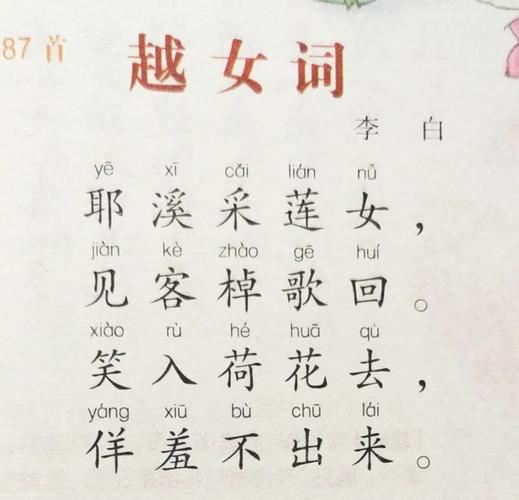 87首
越女词
李白
yē xī cǎi lián nǚ
耶溪采莲女，
jiàn kè zhào gē huí
见客棹歌回。
xiào rù hé huā qù
笑入荷花去，
yáng xiū bù chū lái
佯羞不出来。